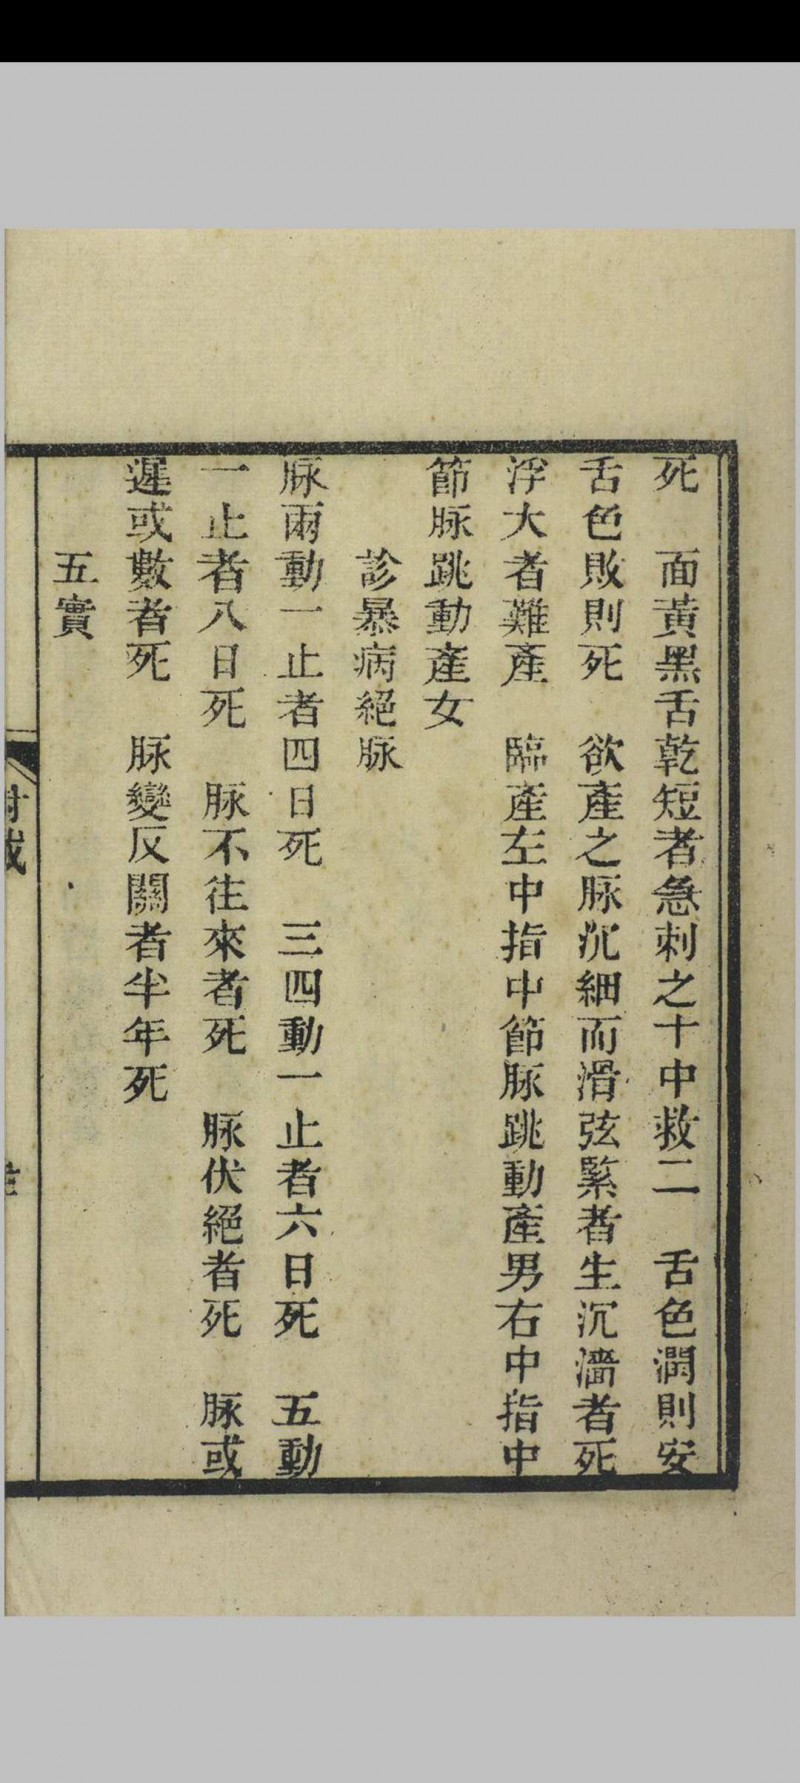 死　面黃黑舌乾短者急刺之十中救二　舌色潤則安
舌色敗則死　欲產之脉沉細而滑弦緊者生沉濇者死
浮大者難產　臨產左中指中節脉跳動產男右中指中
節脉跳動產女
診暴病絕脉
脉兩動一止者四日死　三四動一止者六日死　五動
一止者八日死　脉不往來者死　脉伏絕者死　脉或
遲或數者死　脉變反關者半年死
五實